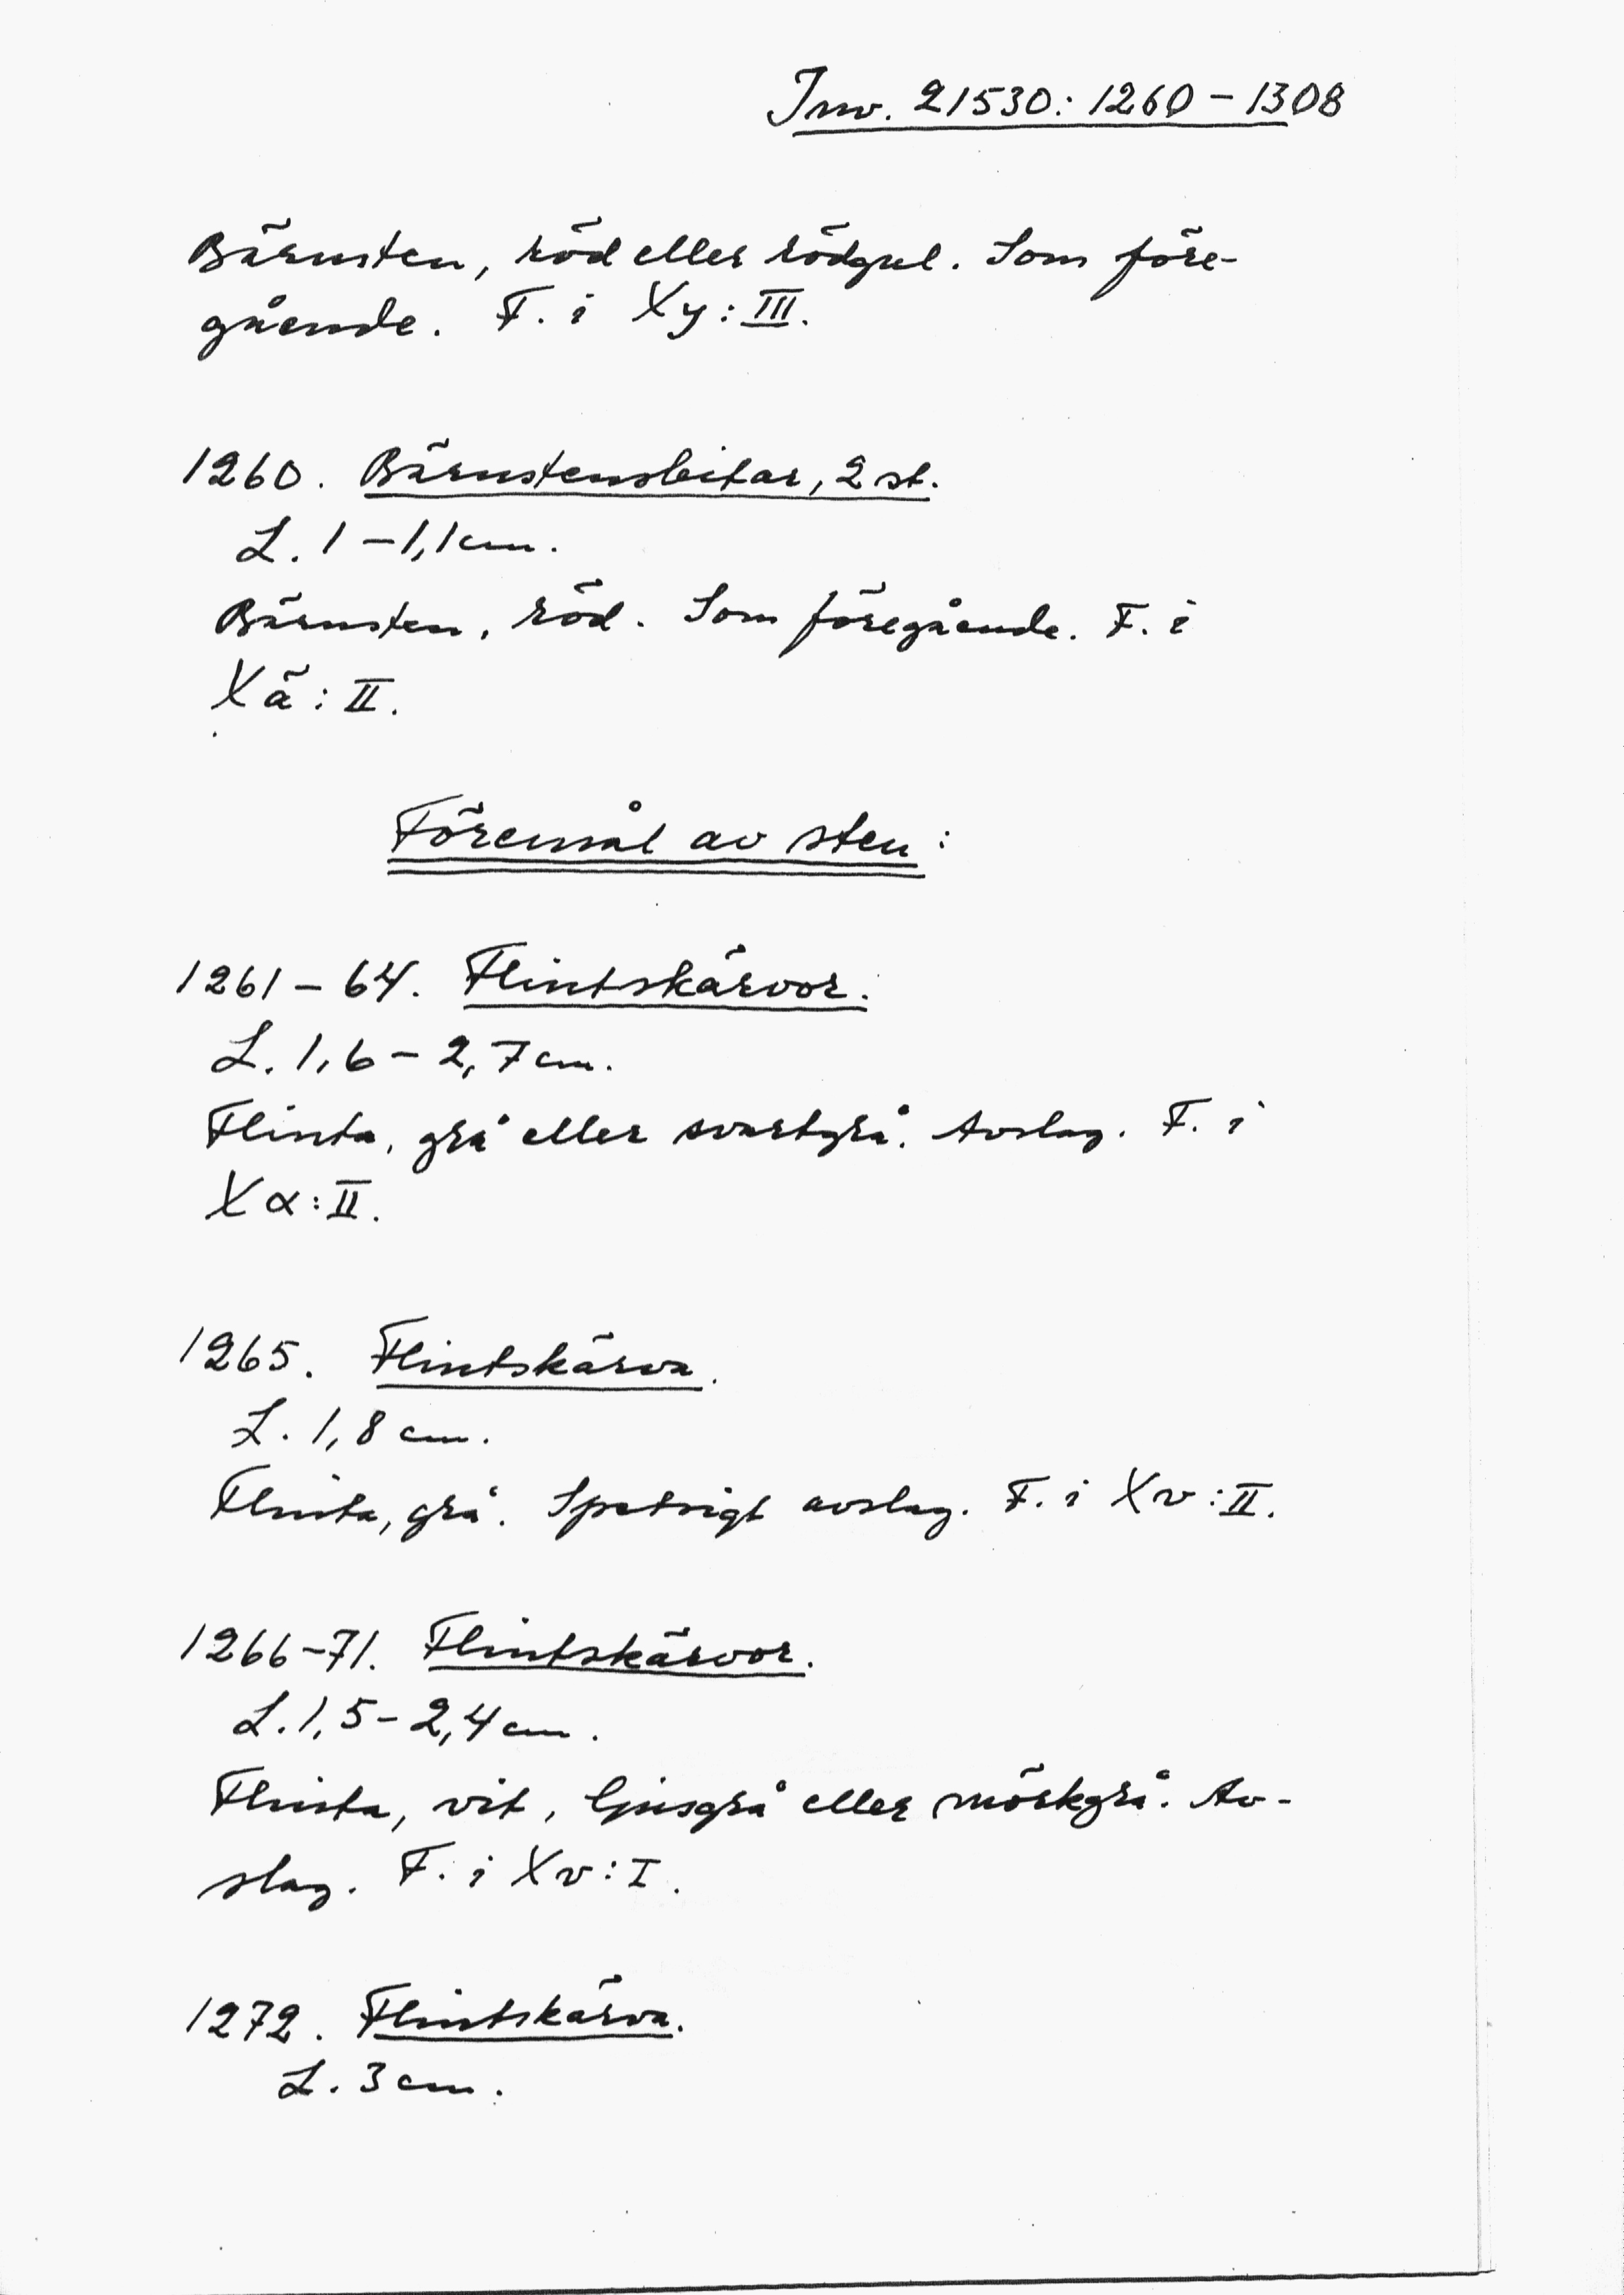 Inv. 21530: 1260-1308
Bärnsten, röd eller rödgul. Som före-
gående. F. i Xy: III.
1260. Bärnstensbitar, 2 st.
L. 1-1,1 cm.
Bärnsten, röd. Som föregående. F. i
Xä: II.
Föremål av sten:
1261-64. Flintskärvor.
L. 1,6-2,7 cm.
Flinta, grå eller svartgrå. Avslag. F. i
Xα: II.
1265. Flintskärva.
L. 1,8 cm.
Flinta, grå. Spetsigt avslag. F. i Xv: II.
1266-71. Flintskärvor.
L. 1,5-2,4 cm.
Flinta, vit, ljusgrå eller mörkgrå. Av-
slag. F. i Xv: I.
1272. Flintskärva.
L. 3 cm.